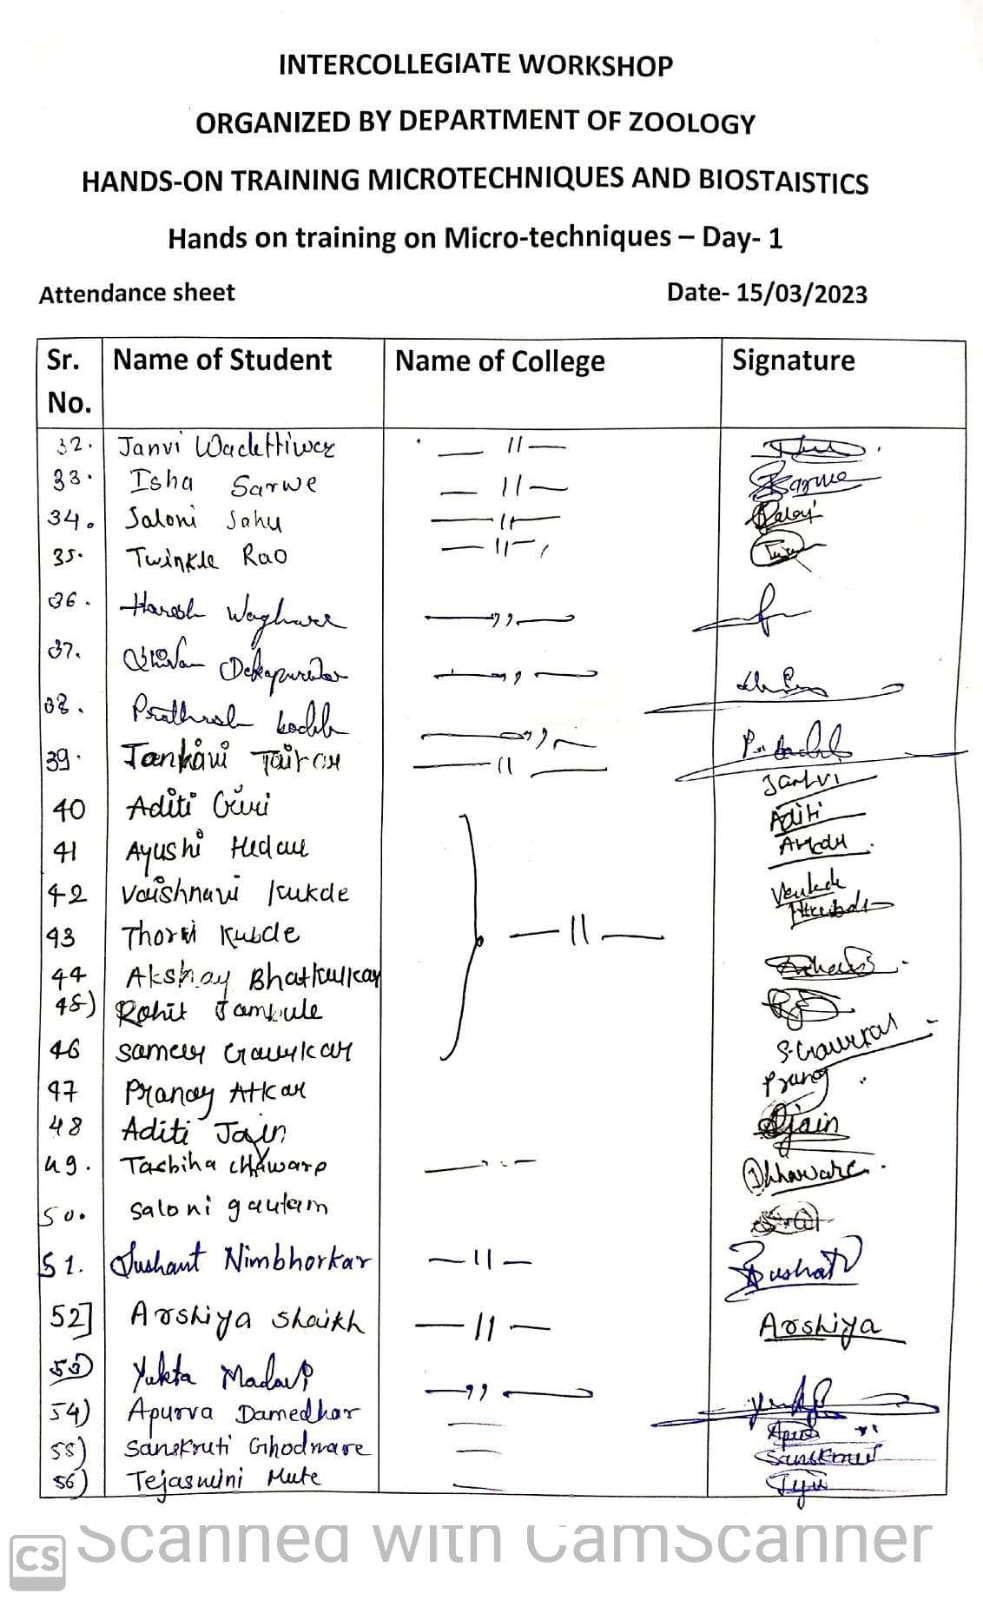 INTERCOLLEGIATE WORKSHOP
ORGANIZED BY DEPARTMENT OF ZOOLOGY
HANDS-ON TRAINING MICROTECHNIQUES AND BIOSTAISTICS
Hands on training on Micro-techniques – Day- 1
Attendance sheet Date- 15/03/2023
Sr. No. Name of Student Name of College Signature
32. Janvi Wadettiwar — 11 —
33. Isha Sarwe — 11 — Sarwe
34. Saloni Sahu — 11 —
35. Twinkle Rao — 11 —
36. Harsh Waghare — ,, —
37. — ,, —
38. Prathmesh — ,, —
39. Jankavi Tairam — 11 — Janvi
40 Aditi Giri Aditi
41 Ayushi Hedau
42 Vaishnavi Kukde
43 Kubde — 11 —
44 Akshay Bhatkulkar
45) Rohit Jambule
46 Sameer Gawykar S.Gawykar
47 Pranay Atkar Pranay
48 Aditi Jain Jain
49. Tasbiha Chhaware — Chhaware.
50. Saloni gautam
51. Sushant Nimbhorkar — 11 — Sushant
52] Arshiya Shaikh — 11 — Arshiya
53) Yukta Madavi — ,, —
54) Apurva Damedhar — Apurva
55) Sanskruti Ghodmare — Sanskruti
56) Tejaswini Mute — Teju
CS Scanned with CamScanner